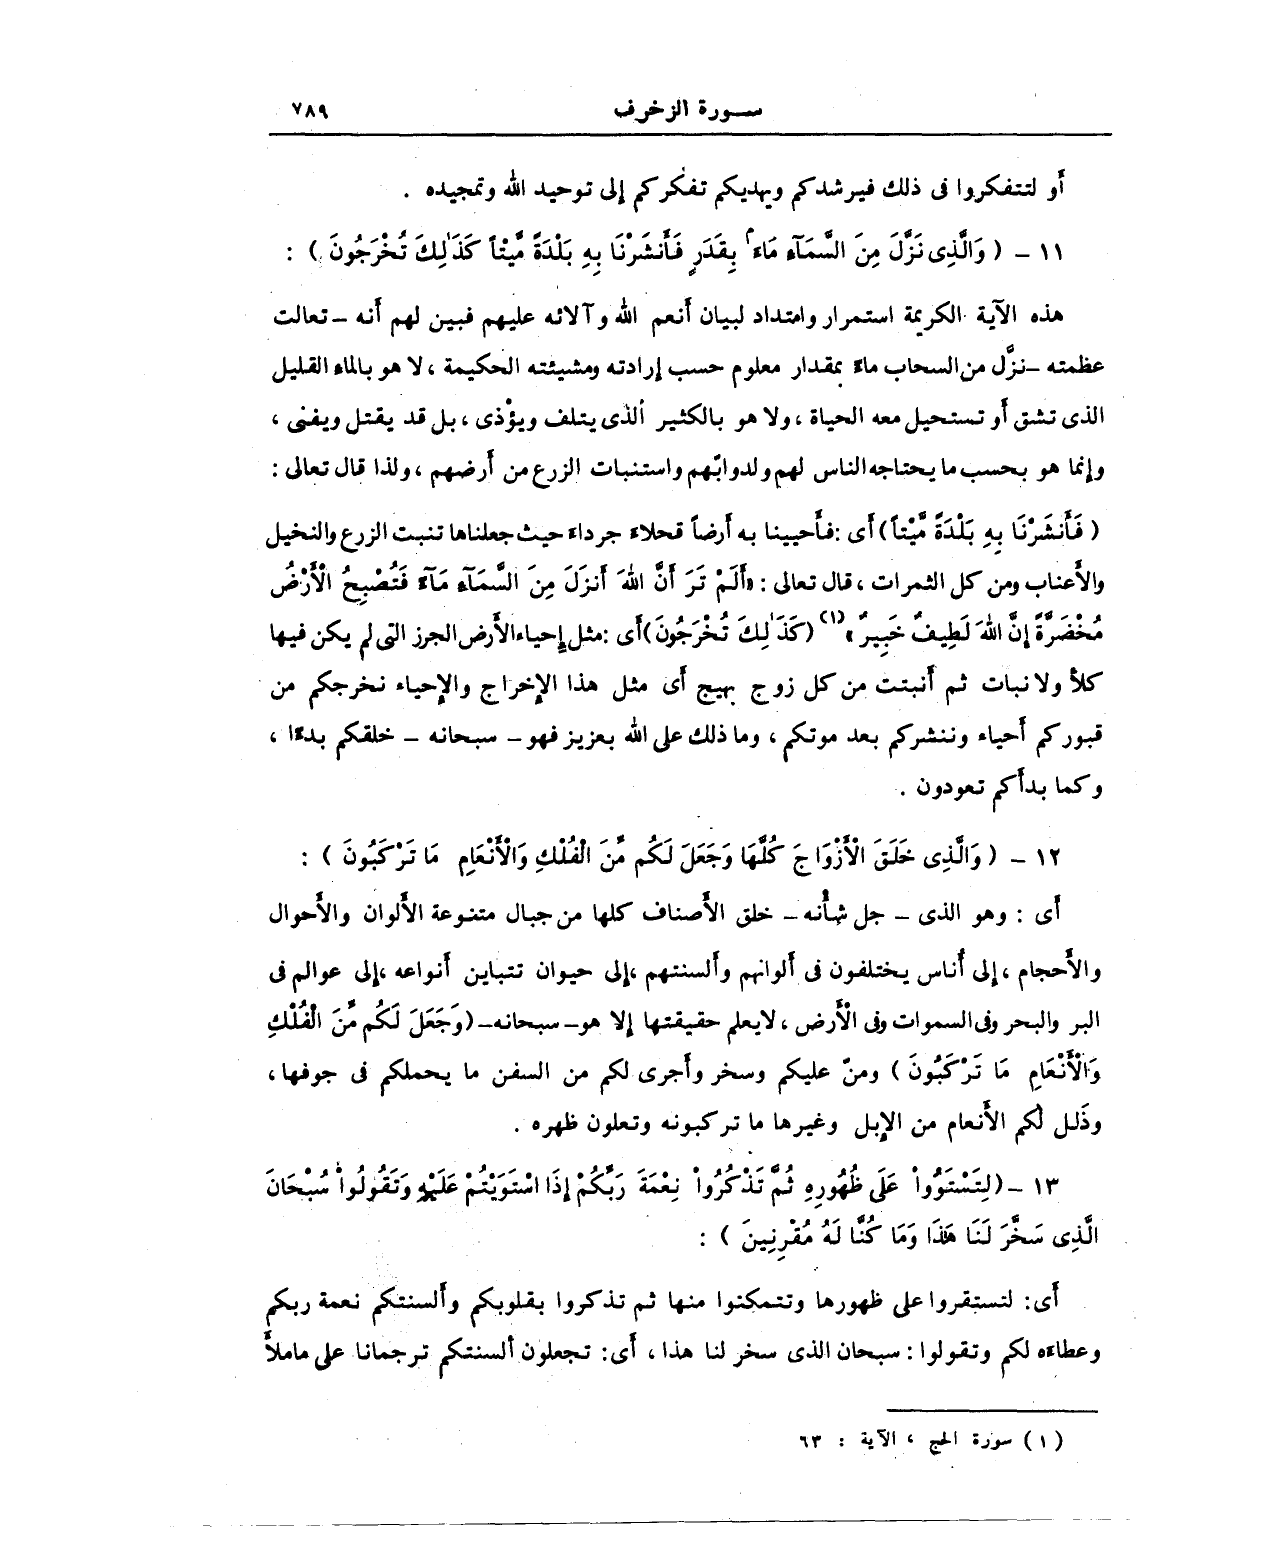 سورة الزخرف ٧٨٩
أو لتتفكروا فى ذلك فيرشدكم ويهديكم تفكركم إلى توحيد الله وتمجيده .
١١ – ( وَالَّذِى نَزَّلَ مِنَ السَّمَآءِ مَآءً بِقَدَرٍ فَأَنشَرْنَا بِهِ بَلْدَةً مَّيْتاً كَذَٰلِكَ تُخْرَجُونَ ) :
هذه الآية الكريمة استمرار وامتداد لبيان أنعم الله وآلائه عليهم فبين لهم أنه – تعالت
عظمته – نزَّل من السحاب ماءً بمقدار معلوم حسب إرادته ومشيئته الحكيمة ، لا هو بالماء القليل
الذى تشق أو تستحيل معه الحياة ، ولا هو بالكثير الذى يتلف ويؤذى ، بل قد يقتل ويفنى ،
وإنما هو بحسب ما يحتاجه الناس لهم ولدوابّهم واستنبات الزرع من أرضهم ، ولذا قال تعالى :
( فَأَنشَرْنَا بِهِ بَلْدَةً مَّيْتاً ) أى : فأحيينا به أرضاً قحلاء جرداء حيث جعلناها تنبت الزرع والنخيل
والأعناب ومن كل الثمرات ، قال تعالى : «أَلَمْ تَرَ أَنَّ اللهَ أَنزَلَ مِنَ السَّمَآءِ مَآءً فَتُصْبِحُ الْأَرْضُ
مُخْضَرَّةً إِنَّ اللهَ لَطِيفٌ خَبِيرٌ» (١) (كَذَٰلِكَ تُخْرَجُونَ) أى : مثل إحياء الأرض الجرز التى لم يكن فيها
كلأ ولا نبات ثم أنبتت من كل زوج بهيج أى مثل هذا الإخراج والإحياء نخرجكم من
قبوركم أحياء وننشركم بعد موتكم ، وما ذلك على الله بعزيز فهو – سبحانه – خلقكم بدءًا ،
وكما بدأكم تعودون .
١٢ – ( وَالَّذِى خَلَقَ الْأَزْوَاجَ كُلَّهَا وَجَعَلَ لَكُم مِّنَ الْفُلْكِ وَالْأَنْعَامِ مَا تَرْكَبُونَ ) :
أى : وهو الذى – جل شأنه – خلق الأصناف كلها من جبال متنوعة الألوان والأحوال
والأحجام ، إلى أُناس يختلفون فى ألوانهم وألسنتهم ، إلى حيوان تتباين أنواعه ، إلى عوالم فى
البر والبحر وفى السموات وفى الأرض ، لا يعلم حقيقتها إلا هو – سبحانه – (وَجَعَلَ لَكُم مِّنَ الْفُلْكِ
وَالْأَنْعَامِ مَا تَرْكَبُونَ ) ومنّ عليكم وسخر وأجرى لكم من السفن ما يحملكم فى جوفها ،
وذَلل لكم الأنعام من الإبل وغيرها ما تركبونه وتعلون ظهره .
١٣ – (لِتَسْتَوُوا عَلَى ظُهُورِهِ ثُمَّ تَذْكُرُوا نِعْمَةَ رَبِّكُمْ إِذَا اسْتَوَيْتُمْ عَلَيْهِ وَتَقُولُوا سُبْحَانَ
الَّذِى سَخَّرَ لَنَا هَٰذَا وَمَا كُنَّا لَهُ مُقْرِنِينَ ) :
أى : لتستقروا على ظهورها وتتمكنوا منها ثم تذكروا بقلوبكم وألسنتكم نعمة ربكم
وعطاءه لكم وتقولوا : سبحان الذى سخر لنا هذا ، أى : تجعلون ألسنتكم ترجمانا على ما ملأ
(١) سورة الحج ، الآية : ٦٣